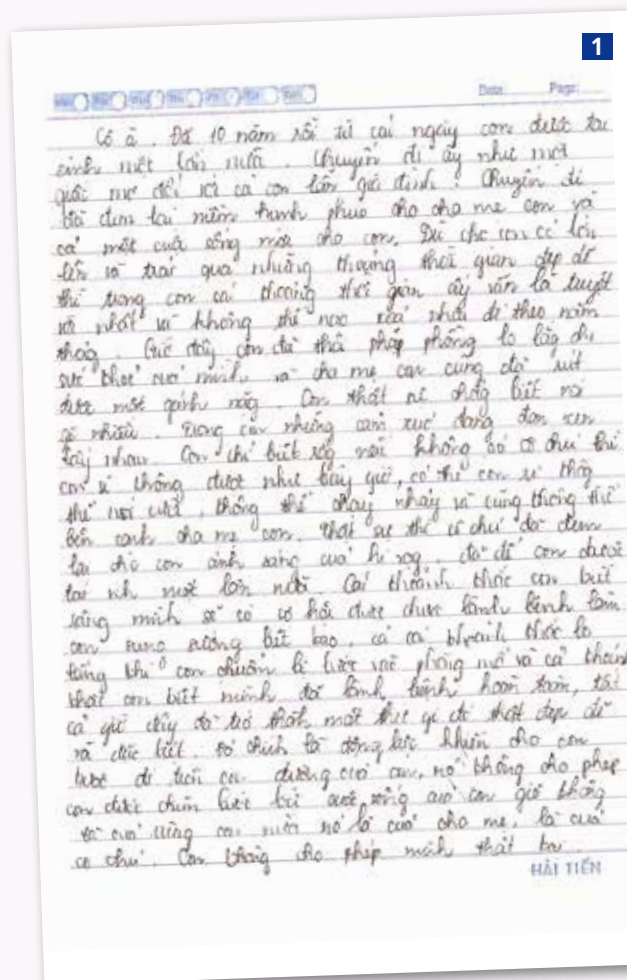 1
Date: Page:
Cô ạ. Đã 10 năm rồi từ cái ngày con được tái
sinh một lần nữa. Chuyến đi ấy như một
giấc mơ đối với cả con lẫn gia đình. Chuyến đi
đã đem lại niềm hạnh phúc cho cha mẹ con và
cả một cuộc sống mới cho con. Dù cho con có lớn
lên và trải qua những khoảng thời gian đẹp đẽ
thì trong con cái khoảng thời gian ấy vẫn là tuyệt
vời nhất và không thể nào xoá nhoà đi theo năm
tháng. Giờ đây con đã thôi phập phồng lo lắng cho
sức khoẻ của mình và cha mẹ con cũng đã
được một gánh nặng. Con thật sự chẳng biết nói
gì nhiều. Trong con những cảm xúc đang đan xen
lấy nhau. Con chỉ biết rằng nếu không có cô chú thì
con sẽ không được như bây giờ, có thể con sẽ không
thể nói cười, không thể chạy nhảy và cũng không thể
bên cạnh cha mẹ con. Thật sự thì cô chú đã đem
lại cho con ánh sáng của hi vọng, đã để con được
tái sinh một lần nữa. Cái khoảnh khắc con biết
rằng mình sẽ có cơ hội được chữa lành bệnh làm
con sung sướng biết bao, cả cái khoảnh khắc lo
lắng khi con chuẩn bị bước vào phòng mổ và cả khoảnh
khắc con biết mình đã lành bệnh hoàn toàn, tất
cả giờ đây đã trở thành một thứ gì đó thật đẹp đẽ
và đặc biệt. Nó chính là động lực khiến cho con
bước đi trên con đường của con, nó không cho phép
con được chùn bước bởi cuộc sống của con giờ không
là của riêng con nữa nó là của cha mẹ, là của
cô chú. Con không cho phép mình thất bại.
HẢI TIẾN